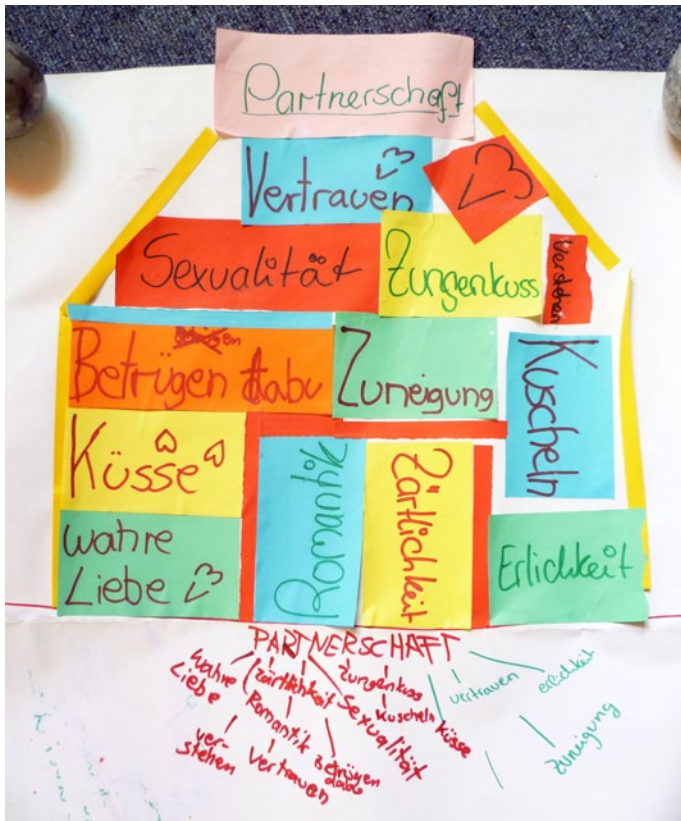 Partnerschaft
Vertrauen
Sexualität
Zungenkuss
Verstehen
Betrügen
Betrügen tabu
Zuneigung
Kuscheln
Küsse
Romantik
Zärtlichkeit
wahre
Liebe
Erlichkeit
PARTNERSCHAFT
wahre
Liebe
Zärtlichkeit
Zungenkuss
Kuscheln
Küsse
vertrauen
erlichkeit
Romantik
Sexualität
ver-
stehen
Vertrauen
Betrügen
dabu
zuneigung